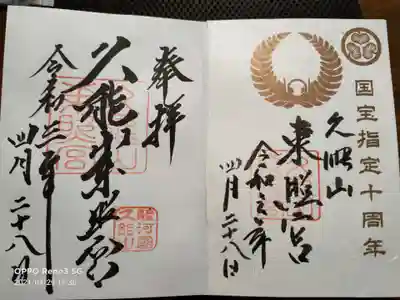 国宝指定十周年
久能山
東照宮
令和三年
四月二十八日
奉拝
久能山東照宮
令和三年
四月二十八日
OPPO Reno3 5G